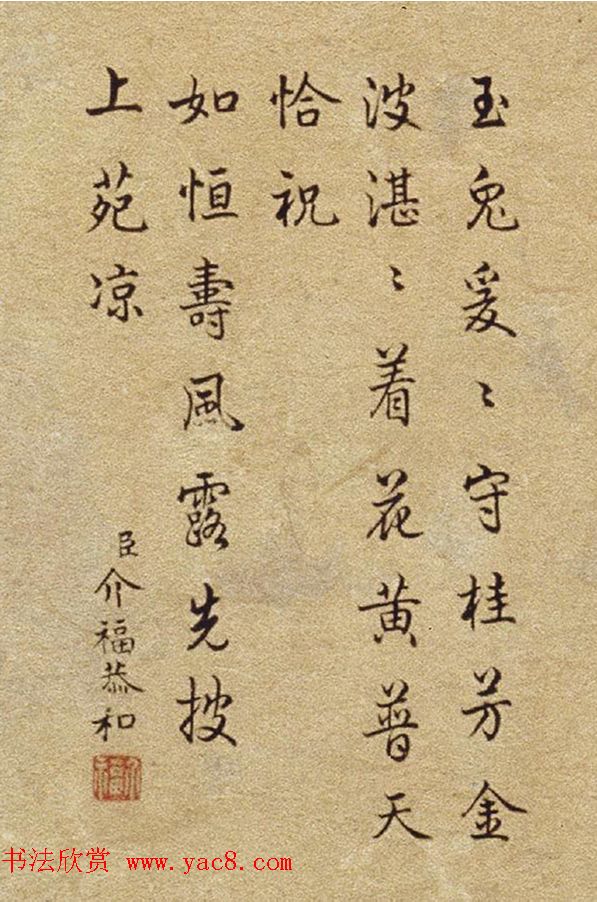 玉兔爰〻守桂芳金
波湛〻着花黄普天
恰祝
如恒壽風露先披
上苑凉
臣介福恭和
介福
书法欣赏 www.yac8.com